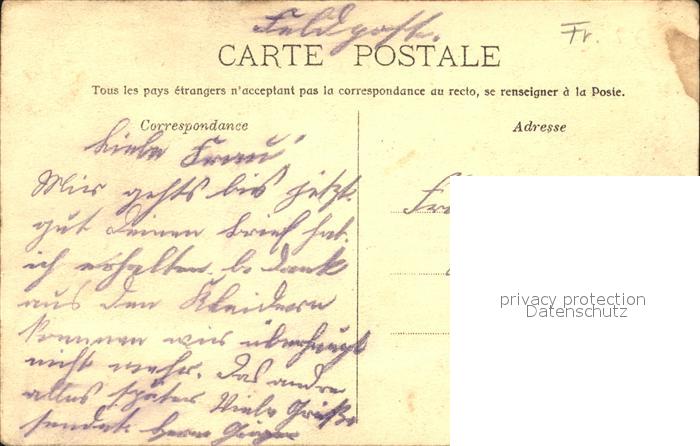 Feldpost.
Fr.
CARTE POSTALE
Tous les pays étrangers n'acceptent pas la correspondance au recto, se renseigner à la Poste.
Correspondance
Adresse
Liebe Frau!
Mir gehts bis jetzt
gut deinen Brief hab
ich erhalten b. Dank
aus den Kleidern
kommen wir überhaupt
nicht mehr. Das andre
alles später Viele Grüße
sendet
privacy protection
Datenschutz